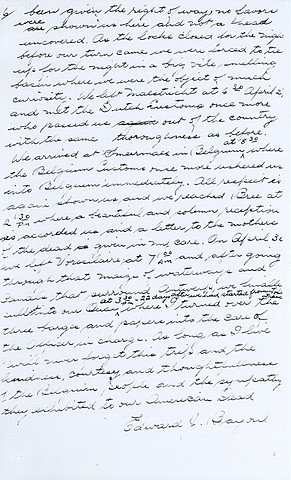 been given the right of way, no favors
were shown us here and not a head
uncovered. As the locks closed for the night
before our turn came we were forced to tie
up for the night in a big vile, smelling
basin where we were the object of much
curiosity. We left Maestricht at 6 30 April 2,
and met the Dutch Customs once more
who passed us out of the country
with the same thoroughness as before.
We arrived at in Belgium where at 8 30
the Belgium Customs once more ushered us
into Belgium immediately. All respect is
again shown us and we reached Bree at
2 30 PM where a beautiful and solemn reception
was accorded us, and a letter to the mothers
of the dead is given in my care. On April 3
we left at 7 AM and, after going
through that maze of waterways and
canals that surround Antwerp, we finally
pulled into our Quay at 3 30 - 22 days after we had started from Paris where I turned over the
three barges and papers into the care of
the Officer in charge. As long as I live
I will never forget this trip and the
kindness, courtesy and thoughtfulness
of the Belgium People and the sympathy
they exhibited to our American Dead
Edward